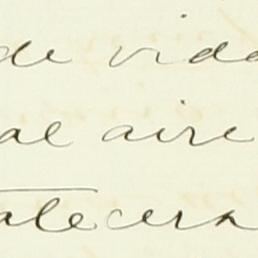 de vida
al aire
alecera